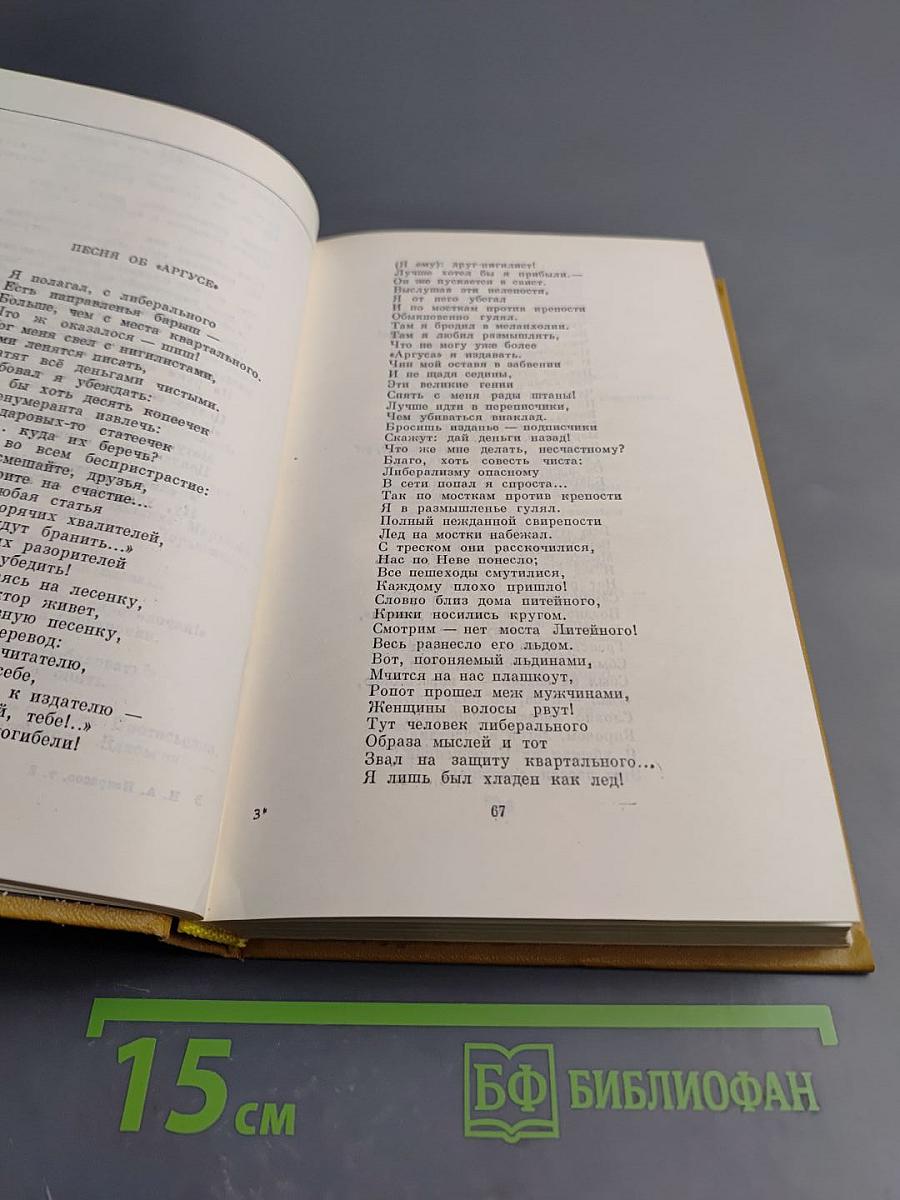 ПЕСНЯ ОБ «АРГУСЕ»
Я полагал, с либерального
Есть направленья барыш —
Больше, чем с места квартального.
Что ж оказалось — шиш!
ог меня свел с нигилистами,
ми ленятся писать,
атят всё деньгами чистыми.
бовал я убеждать:
бы хоть десять копеечек
енумеранта извлечь:
даровых-то статеечек
.. куда их беречь?
во всем беспристрастие:
смешайте, друзья,
рите на счастие...
юбая статья
орячих хвалителей,
удут бранить...»
их разорителей
убедить!
аясь на лесенку,
ктор живет,
вную песенку,
перевод:
читателю,
себе,
к издателю —
й, тебе!..»
огибели!
3 Н. А. Некрасов, т. 2
(Я ему): друг-нигилист!
Лучше хотел бы я прибыли.—
Он же пускается в свист.
Выслушав эти нелепости,
Я от него убегал
И по мосткам против крепости
Обыкновенно гулял.
Там я бродил в меланхолии,
Там я любил размышлять,
Что не могу уже более
«Аргуса» я издавать.
Чин мой оставя в забвении
И не щадя седины,
Эти великие гении
Снять с меня рады штаны!
Лучше идти в переписчики,
Чем убиваться внаклад.
Бросишь изданье — подписчики
Скажут: дай деньги назад!
Что же мне делать, несчастному?
Благо, хоть совесть чиста:
Либерализму опасному
В сети попал я спроста...
Так по мосткам против крепости
Я в размышленье гулял.
Полный нежданной свирепости
Лед на мостки набежал.
С треском они расскочилися,
Нас по Неве понесло;
Все пешеходы смутилися,
Каждому плохо пришло!
Словно близ дома питейного,
Крики носились кругом.
Смотрим — нет моста Литейного!
Весь разнесло его льдом.
Вот, погоняемый льдинами,
Мчится на нас плашкоут,
Ропот прошел меж мужчинами,
Женщины волосы рвут!
Тут человек либерального
Образа мыслей и тот
Звал на защиту квартального...
Я лишь был хладен как лед!
3*
67
15 см
БФ БИБЛИОФАН